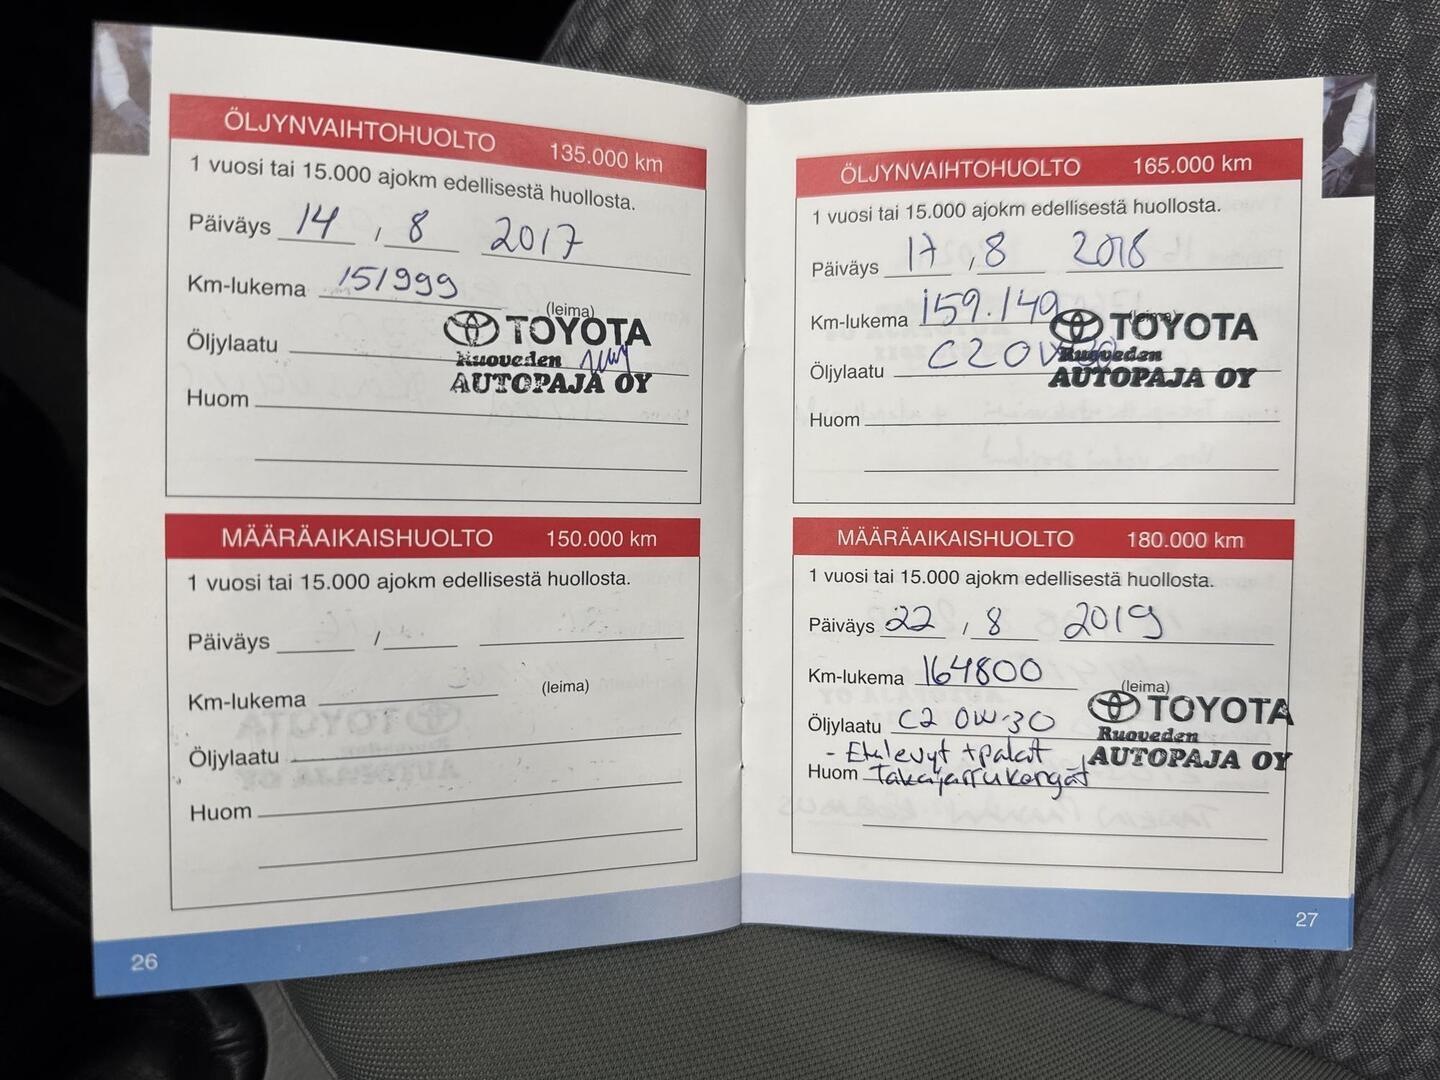 ÖLJYNVAIHTOHUOLTO 135.000 km
1 vuosi tai 15.000 ajokm edellisestä huollosta.
Päiväys 14 / 8 2017
Km-lukema 151999
(leima)
TOYOTA
Öljylaatu
Ruoveden
AUTOPAJA OY
Huom
MÄÄRÄAIKAISHUOLTO 150.000 km
1 vuosi tai 15.000 ajokm edellisestä huollosta.
Päiväys /
Km-lukema (leima)
Öljylaatu
Huom
26
ÖLJYNVAIHTOHUOLTO 165.000 km
1 vuosi tai 15.000 ajokm edellisestä huollosta.
Päiväys 17 , 8 2018
Km-lukema 159.149 (leima)
TOYOTA
Öljylaatu C2 0W30
Ruoveden
AUTOPAJA OY
Huom
MÄÄRÄAIKAISHUOLTO 180.000 km
1 vuosi tai 15.000 ajokm edellisestä huollosta.
Päiväys 22 / 8 2019
Km-lukema 164800
(leima)
TOYOTA
Öljylaatu C2 0W-30
Ruoveden
AUTOPAJA OY
- Etulevyt + palat
Huom Takajarrukengät
27